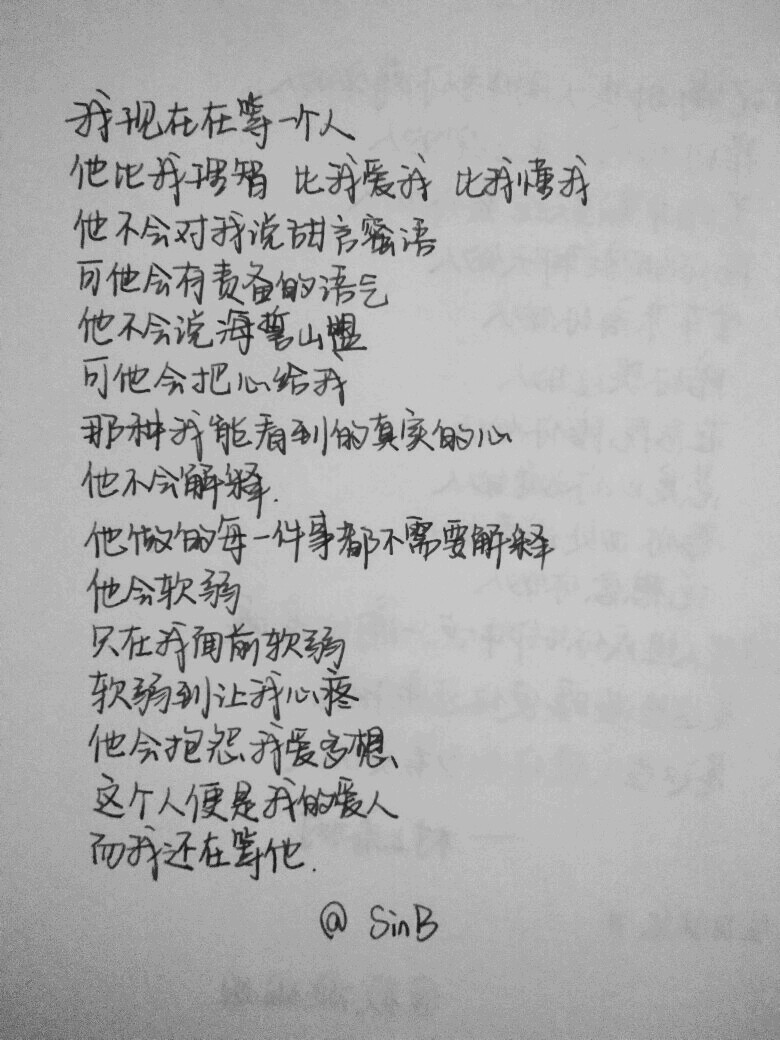 我现在在等一个人
他比我理智 比我爱我 比我懂我
他不会对我说甜言蜜语
可他会有责备的语气
他不会说海誓山盟
可他会把心给我
那种我能看到的真实的心
他不会解释.
他做的每一件事都不需要解释
他会软弱
只在我面前软弱
软弱到让我心疼
他会抱怨我爱多想、
这个人便是我的爱人
而我还在等他.
@ SinB